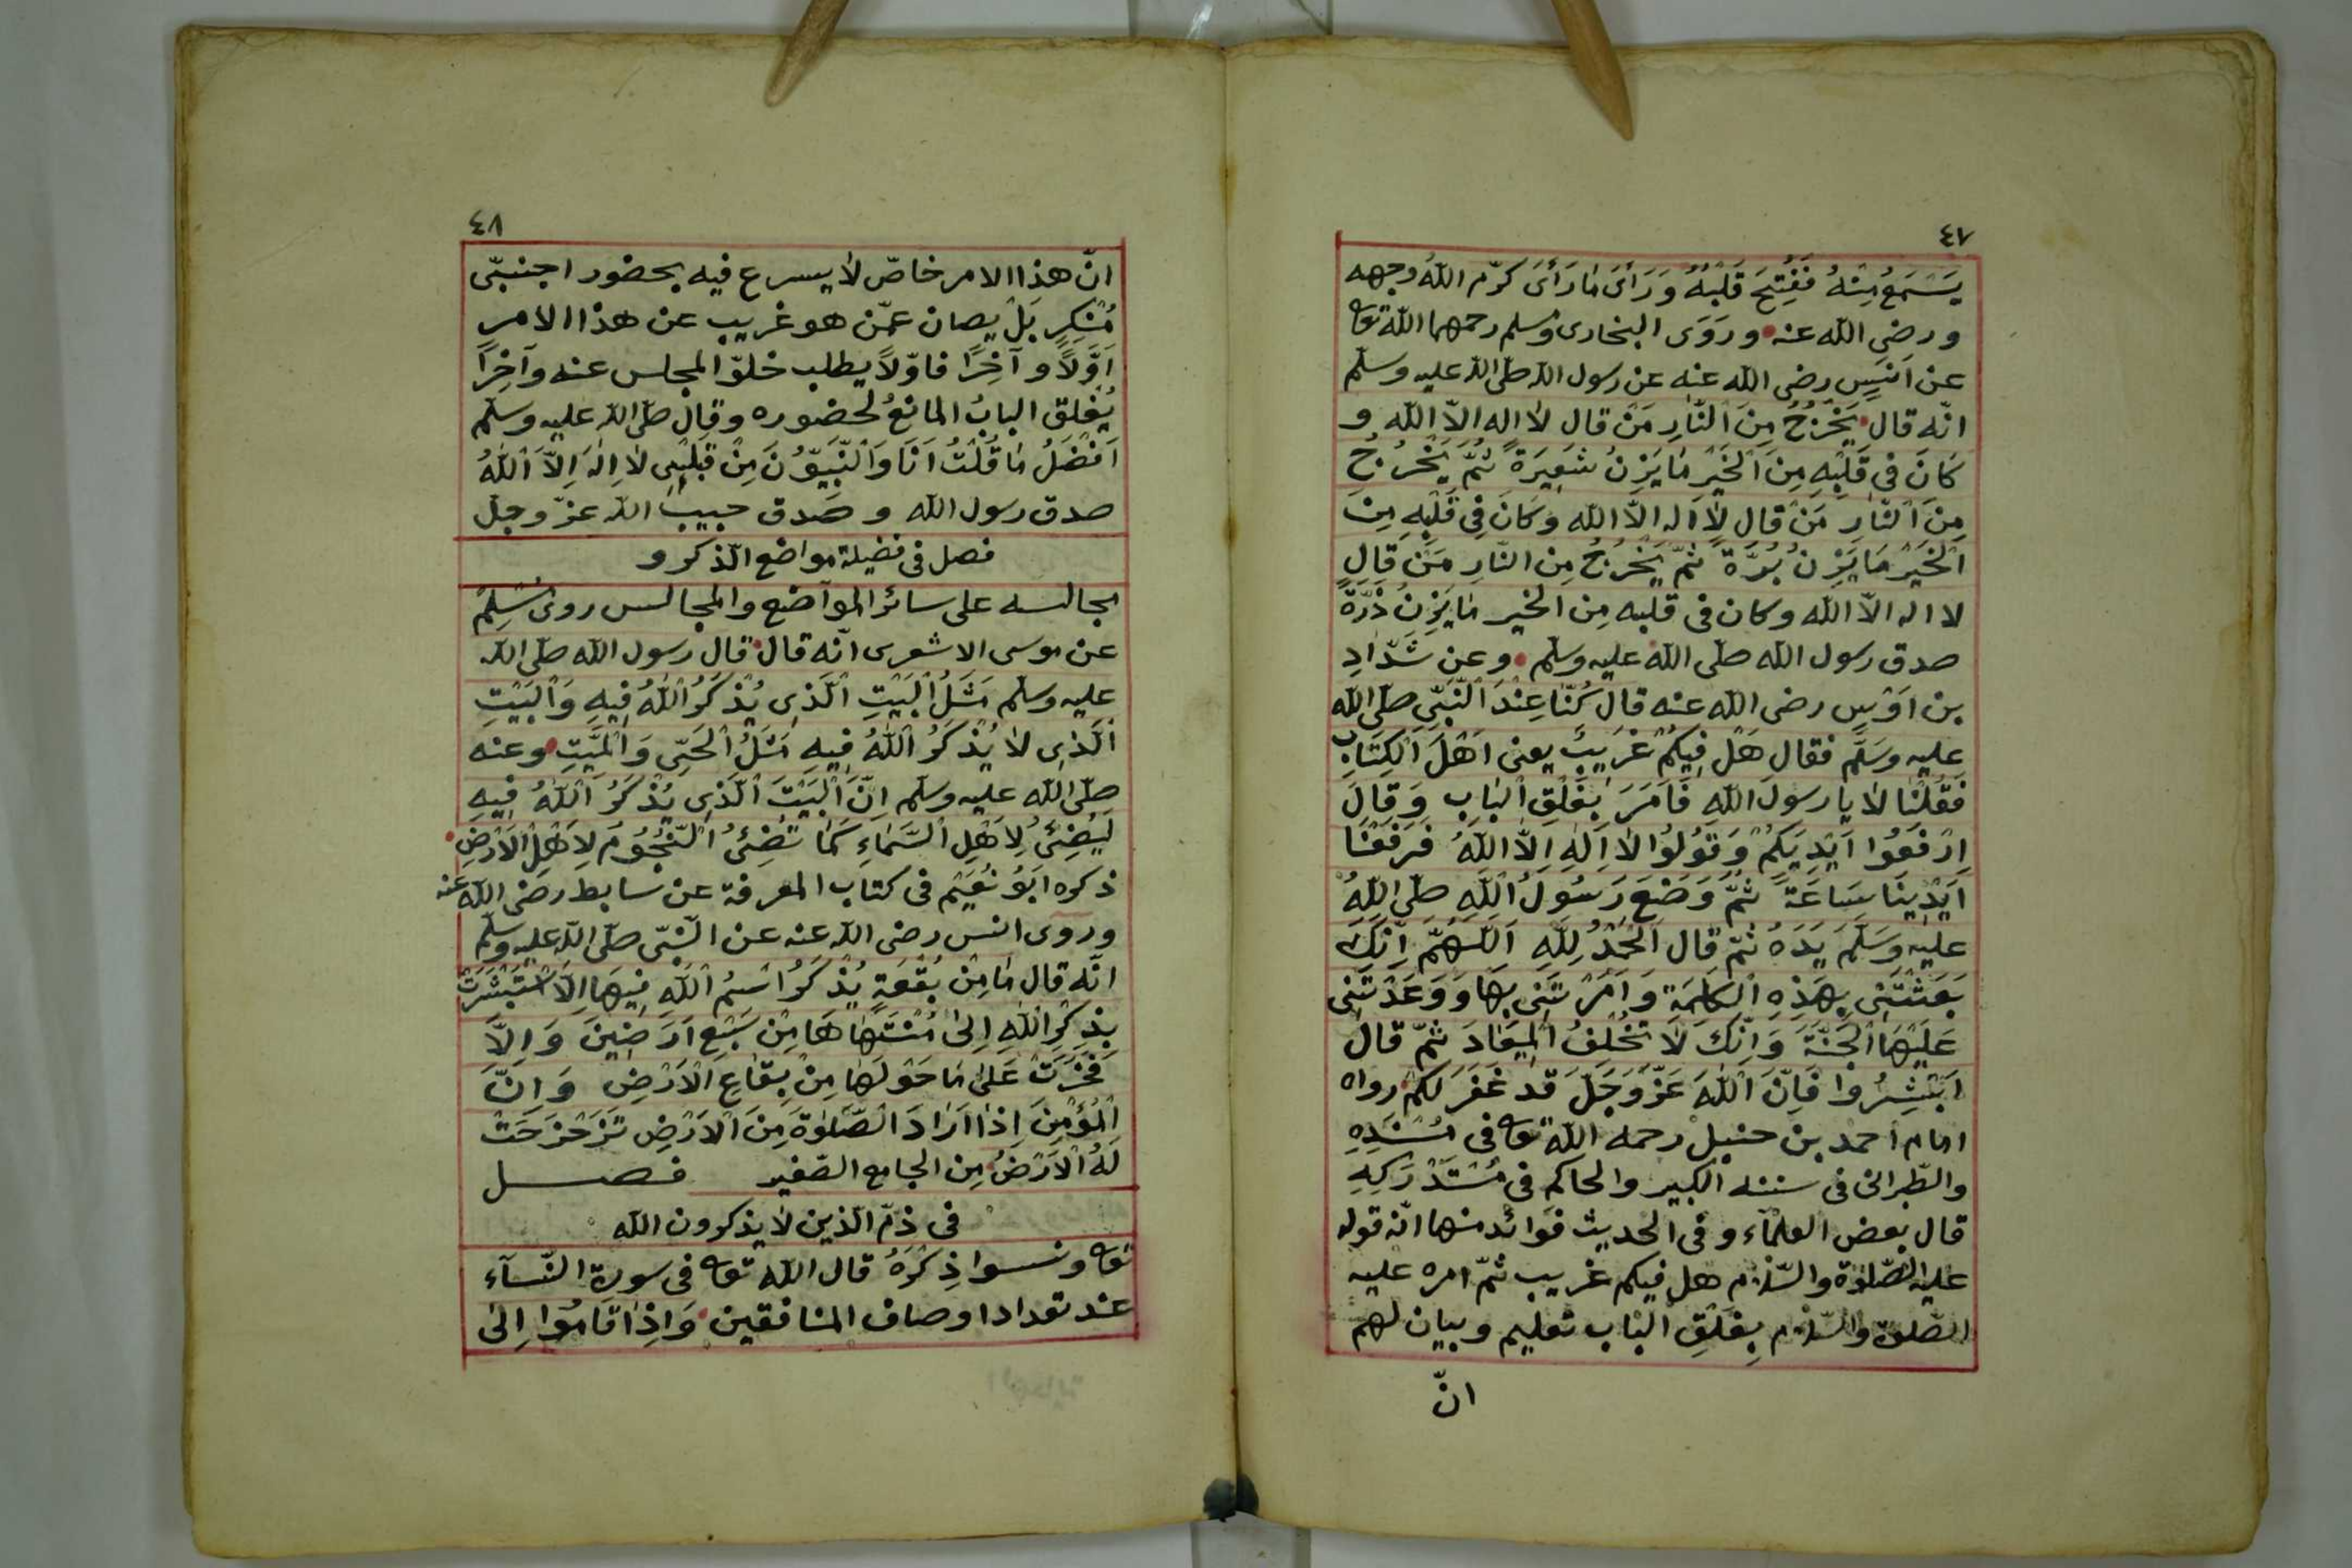 ٤٧
يَسْتَمِعُ مِنْهُ فَفُتِحَ قَلْبُهُ وَرَأَىَ مَا رَأَىَ كرّم اللّٰهُ وجهه
ورضى اللّٰه عنه وَرَوَى البخارى ومسلم رحمهما اللّٰه تعالى
عن اَنَسٍ رضى اللّٰه عنه عن رسول اللّٰه صلّى اللّٰه عليه وسلّم
انّه قال يَخْرُجُ مِنَ النَّارِ مَنْ قال لا اله الاّ اللّٰه و
كَانَ فى قَلْبِهِ مِنَ الْخَيْرِ مَا يَزِنُ شَعِيرَةً ثُمَّ يَخْرُجُ
مِنَ النَّارِ مَنْ قال لا اله الاّ اللّٰه وَكَانَ فِى قَلْبِهِ مِنَ
الْخَيْرِ مَا يَزِنُ بُرَّةً ثمّ يَخْرُجُ مِن النّارِ مَنْ قال
لا اله الاّ اللّٰه وكان فى قلبه مِن الخير مَا يَزِنُ ذَرَّةً
صدق رسول اللّٰه صلّى اللّٰه عليه وسلم وعن شَدَّادِ
بن اَوْسٍ رضى اللّٰه عنه قال كُنَّا عِنْدَ النَّبِىِّ صلّى اللّٰه
عليه وسَلَّم فقال هَلْ فِيكُمْ غَرِيبٌ يعنى اَهْلَ الْكِتَابِ
فَقُلْنَا لا يا رسولَ اللّٰهِ فَاَمَرَ بِغَلْقِ الْبَابِ وَقَالَ
اِرْفَعُوا اَيْدِيَكُمْ وَقُولُوا لا اِلٰهَ اِلاَّ اللّٰهُ فَرَفَعْنَا
اَيْدِينَا سَاعَةً ثُمَّ وَضَعَ رَسُولُ اللّٰهِ صلّى اللّٰهُ
عليه وَسَلَّمَ يَدَهُ ثمّ قال اَلْحَمْدُ لِلّٰهِ اَللّٰهُمَّ اِنَّكَ
بَعَثْتَنِى بِهٰذِهِ الْكَلِمَةِ وَاَمَرْتَنِى بِهَا وَوَعَدْتَنِى
عَلَيْهَا الْجَنَّةَ وَاِنَّكَ لا تُخْلِفُ الْمِيعَادَ ثمّ قال
اَبْشِرُوا فَاِنَّ اللّٰهَ عَزَّ وَجَلَّ قد غَفَرَ لكم رواه
امام احمد بن حنبل رحمه اللّٰه تعالى فى مُسْنَدِهِ
والطّبرانى فى سننه الكبير والحاكم فى مُسْتَدْرَكِهِ
قال بعض العلمآء وفى الحديث فوائد منها انّ قوله
عليه الصّلوة والسّلام هل فيكم غريب ثمّ امره عليه
الصّلوة والسّلام بِغَلْقِ الْبَابِ تعليم وبيان لهم
انّ
٤٨
انّ هذا الامر خاصّ لا يسرع فيه بحضور اجنبىّ
مُنْكِرٍ بَلْ يصان عمّن هو غريب عن هذا الامر
اَوَّلاً و آخِرًا فاوّلاً يطلب خلوّ المجلس عنه وآخِرًا
يُغلق البابُ المانعُ لحضوره وقال صلّى اللّٰه عليه وسلّم
اَفْضَلُ مَا قُلْتُ اَنَا وَالنَّبِيُّونَ مِنْ قَبْلِى لا اِلٰهَ اِلاَّ اللّٰهُ
صدق رسول اللّٰه و صَدق حبيب اللّٰه عزّ وجلّ
فصل فى فضيلة مواضع الذكر و
مجالسه على سائر المواضع والمجالس روى مُسْلِمٌ
عن موسى الاشعرى انّه قال قال رسول اللّٰه صلّى اللّٰه
عليه وسلّم مَثَلُ الْبَيْتِ الَّذِى يُذْكَرُ اللّٰهُ فِيهِ وَالْبَيْتِ
الَّذِى لا يُذْكَرُ اللّٰهُ فِيهِ مَثَلُ الْحَىِّ وَالْمَيِّتِ وعنه
صلّى اللّٰه عليه وسلّم اِنَّ الْبَيْتَ الَّذِى يُذْكَرُ اللّٰهُ فِيهِ
لَيُضِئُ لِاَهْلِ السَّمَاءِ كَمَا تُضِئُ النُّجُومُ لِاَهْلِ الْاَرْضِ
ذكره اَبُو نُعَيْم فى كتاب المعرفة عن سابط رضى اللّٰه عنه
وروى انس رضى اللّٰه عنه عن النّبىّ صلّى اللّٰه عليه وسلّم
انّه قال مَا مِنْ بُقْعَةٍ يُذْكَرُ اسْمُ اللّٰهِ فِيهَا اِلاَّ اسْتَبْشَرَتْ
بِذِكْرِ اللّٰهِ اِلىٰ مُنْتَهَاهَا مِنْ سَبْعِ اَرَضِينَ وَاِلاَّ
فَخَرَتْ عَلىٰ مَا حَوْلَهَا مِنْ بِقَاعِ الْاَرْضِ وَاِنَّ
الْمُؤْمِنَ اِذَا اَرَادَ الصَّلٰوةَ مِنَ الْاَرْضِ تَزَخْرَفَتْ
لَهُ الْاَرْضُ مِن الجامع الصّغير فصل
فى ذمّ الّذين لا يذكرون اللّٰه
تعالى ونسوا ذِكْرَهُ قال اللّٰه تعالى فى سورة النّسآء
عند تعداد اوصاف المنافقين وَاِذَا قَامُوا اِلىٰ